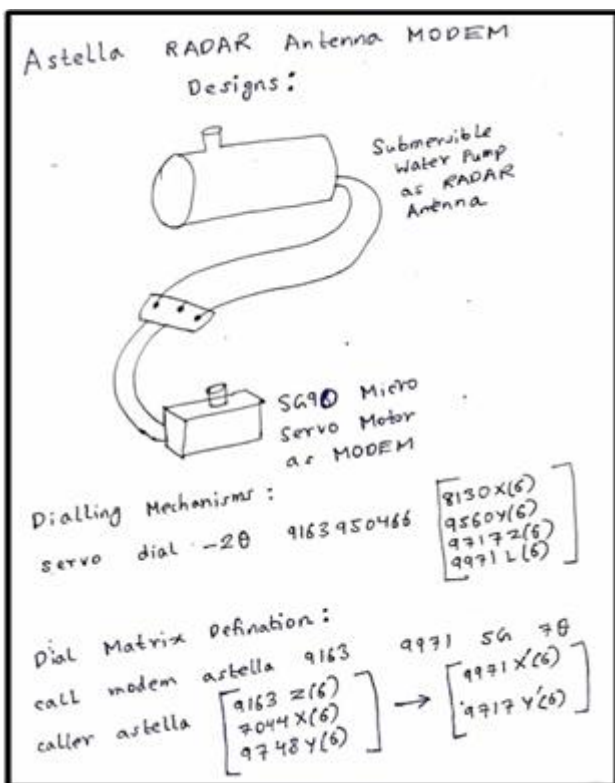 Astella RADAR Antenna MODEM
Designs:
Submersible
Water Pump
as RADAR
Antenna
SG90 Micro
Servo Motor
as MODEM
Dialling Mechanisms:
servo dial -2θ 9163950466
8130X(6)
9560Y(6)
9717Z(6)
9971L(6)
Dial Matrix Defination:
call modem astella 9163 9971 5G 7θ
caller astella
9163 Z(6)
7044X(6)
9748Y(6)
→
9971X'(6)
9717Y'(6)